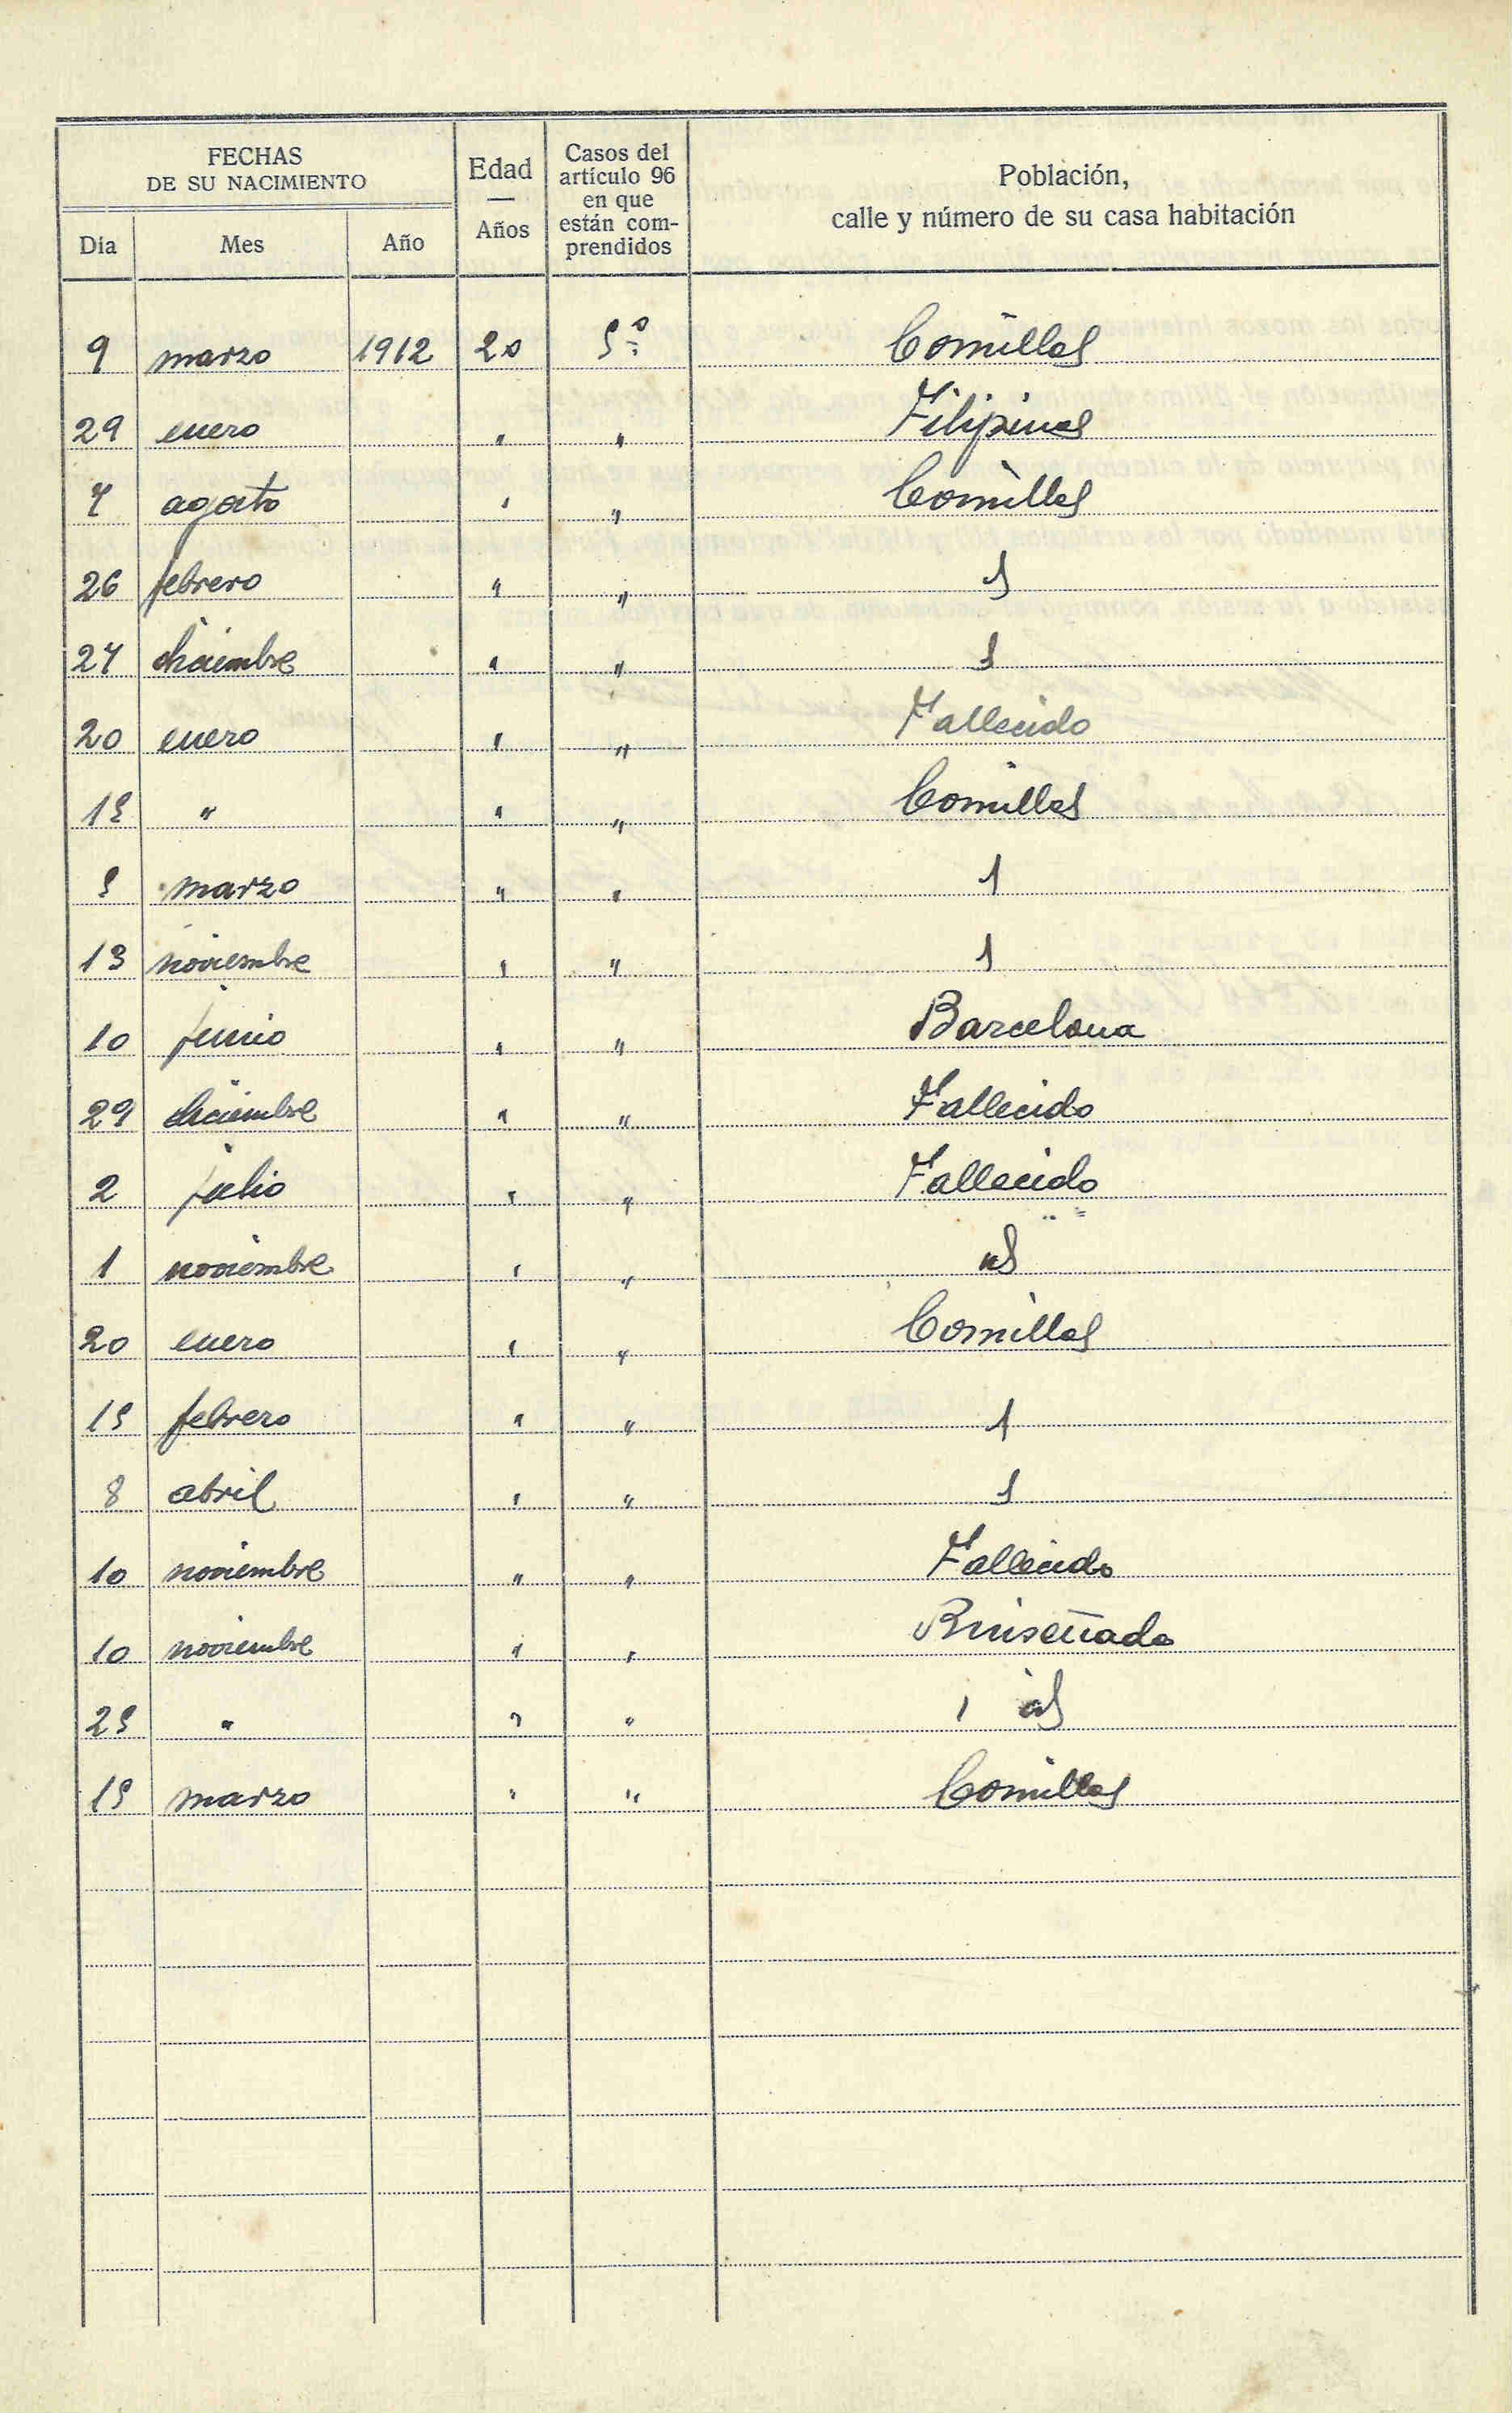 FECHAS
DE SU NACIMIENTO
Edad
—
Años
Casos del
artículo 96
en que
están com-
prendidos
Población,
calle y número de su casa habitación
Día Mes Año
9 marzo 1912 20 5º Comillas
29 enero " " Filipinas
7 agosto " " Comillas
26 febrero " "
27 diciembre " "
20 enero " " Fallecido
15 " " " Comillas
5 marzo " "
13 noviembre " "
10 junio " " Barcelona
29 diciembre " " Fallecido
2 julio " " Fallecido
1 noviembre " "
20 enero " " Comillas
15 febrero " "
8 abril " "
10 noviembre " " Fallecido
10 noviembre " " Ruiseñada
25 " " "
15 marzo " " Comillas